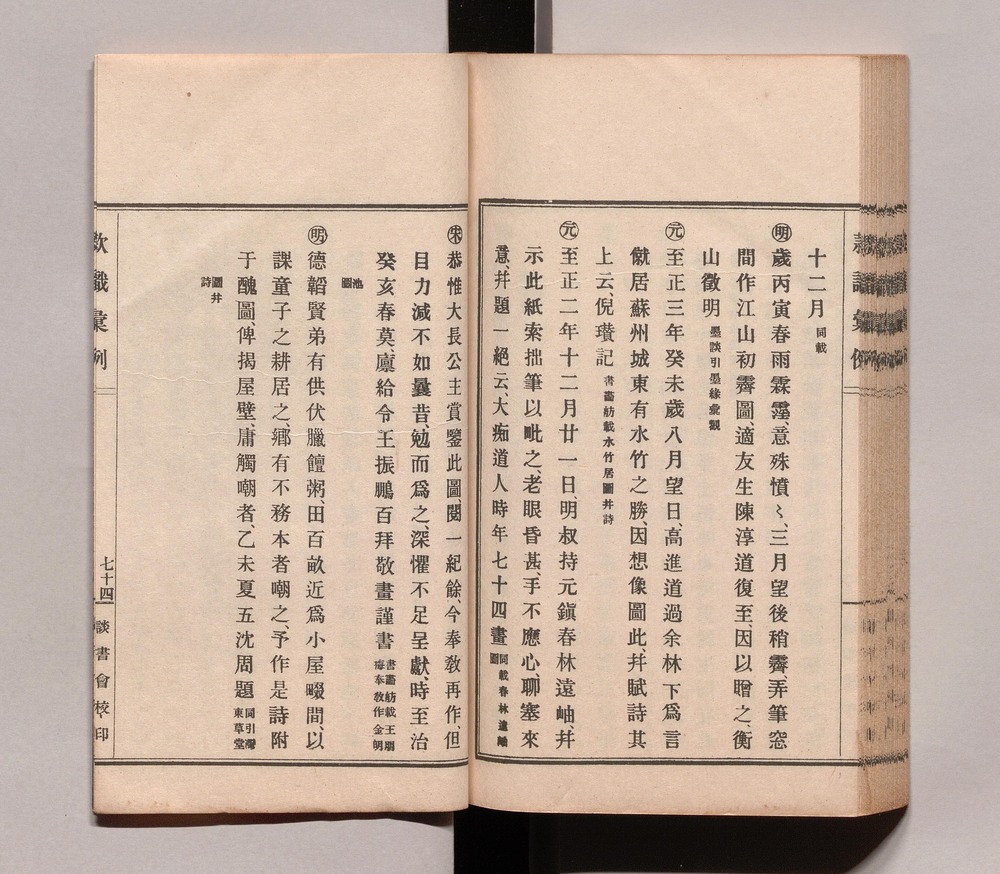 十二月同載
明歲丙寅春雨霖霪、意殊憒〻、三月望後稍霽、弄筆窓
間作江山初霽圖、適友生陳淳道復至、因以贈之、衡
山徵明墨談引墨緣彙觀
元至正三年癸未歲八月望日、高進道過余林下爲言
僦居蘇州城東有水竹之勝、因想像圖此、幷賦詩其
上云、倪瓚記書畵舫載水竹居圖幷詩
元至正二年十二月廿一日、明叔持元鎭春林遠岫、幷
示此紙索拙筆以毗之、老眼昏甚、手不應心、聊塞來
意、幷題一絕云、大痴道人時年七十四畫同載春林遠岫圖
宋恭惟大長公主賞鑒此圖、閱一紀餘、今奉敎再作、但
目力減不如曩昔、勉而爲之、深懼不足呈獻、時至治
癸亥春莫、廩給令王振鵬百拜敬畫謹書書畵舫載王朋梅奉敎作金明
池圖
明德韜賢弟有供伏臘饘粥、田百畝近爲小屋畷間、以
課童子之耕居之、鄉有不務本者嘲之、予作是詩附
于醜圖、俾揭屋壁、庸觸嘲者、乙未夏五沈周題同引灣東草堂
圖幷詩
款識彙例
七十四
談書會校印